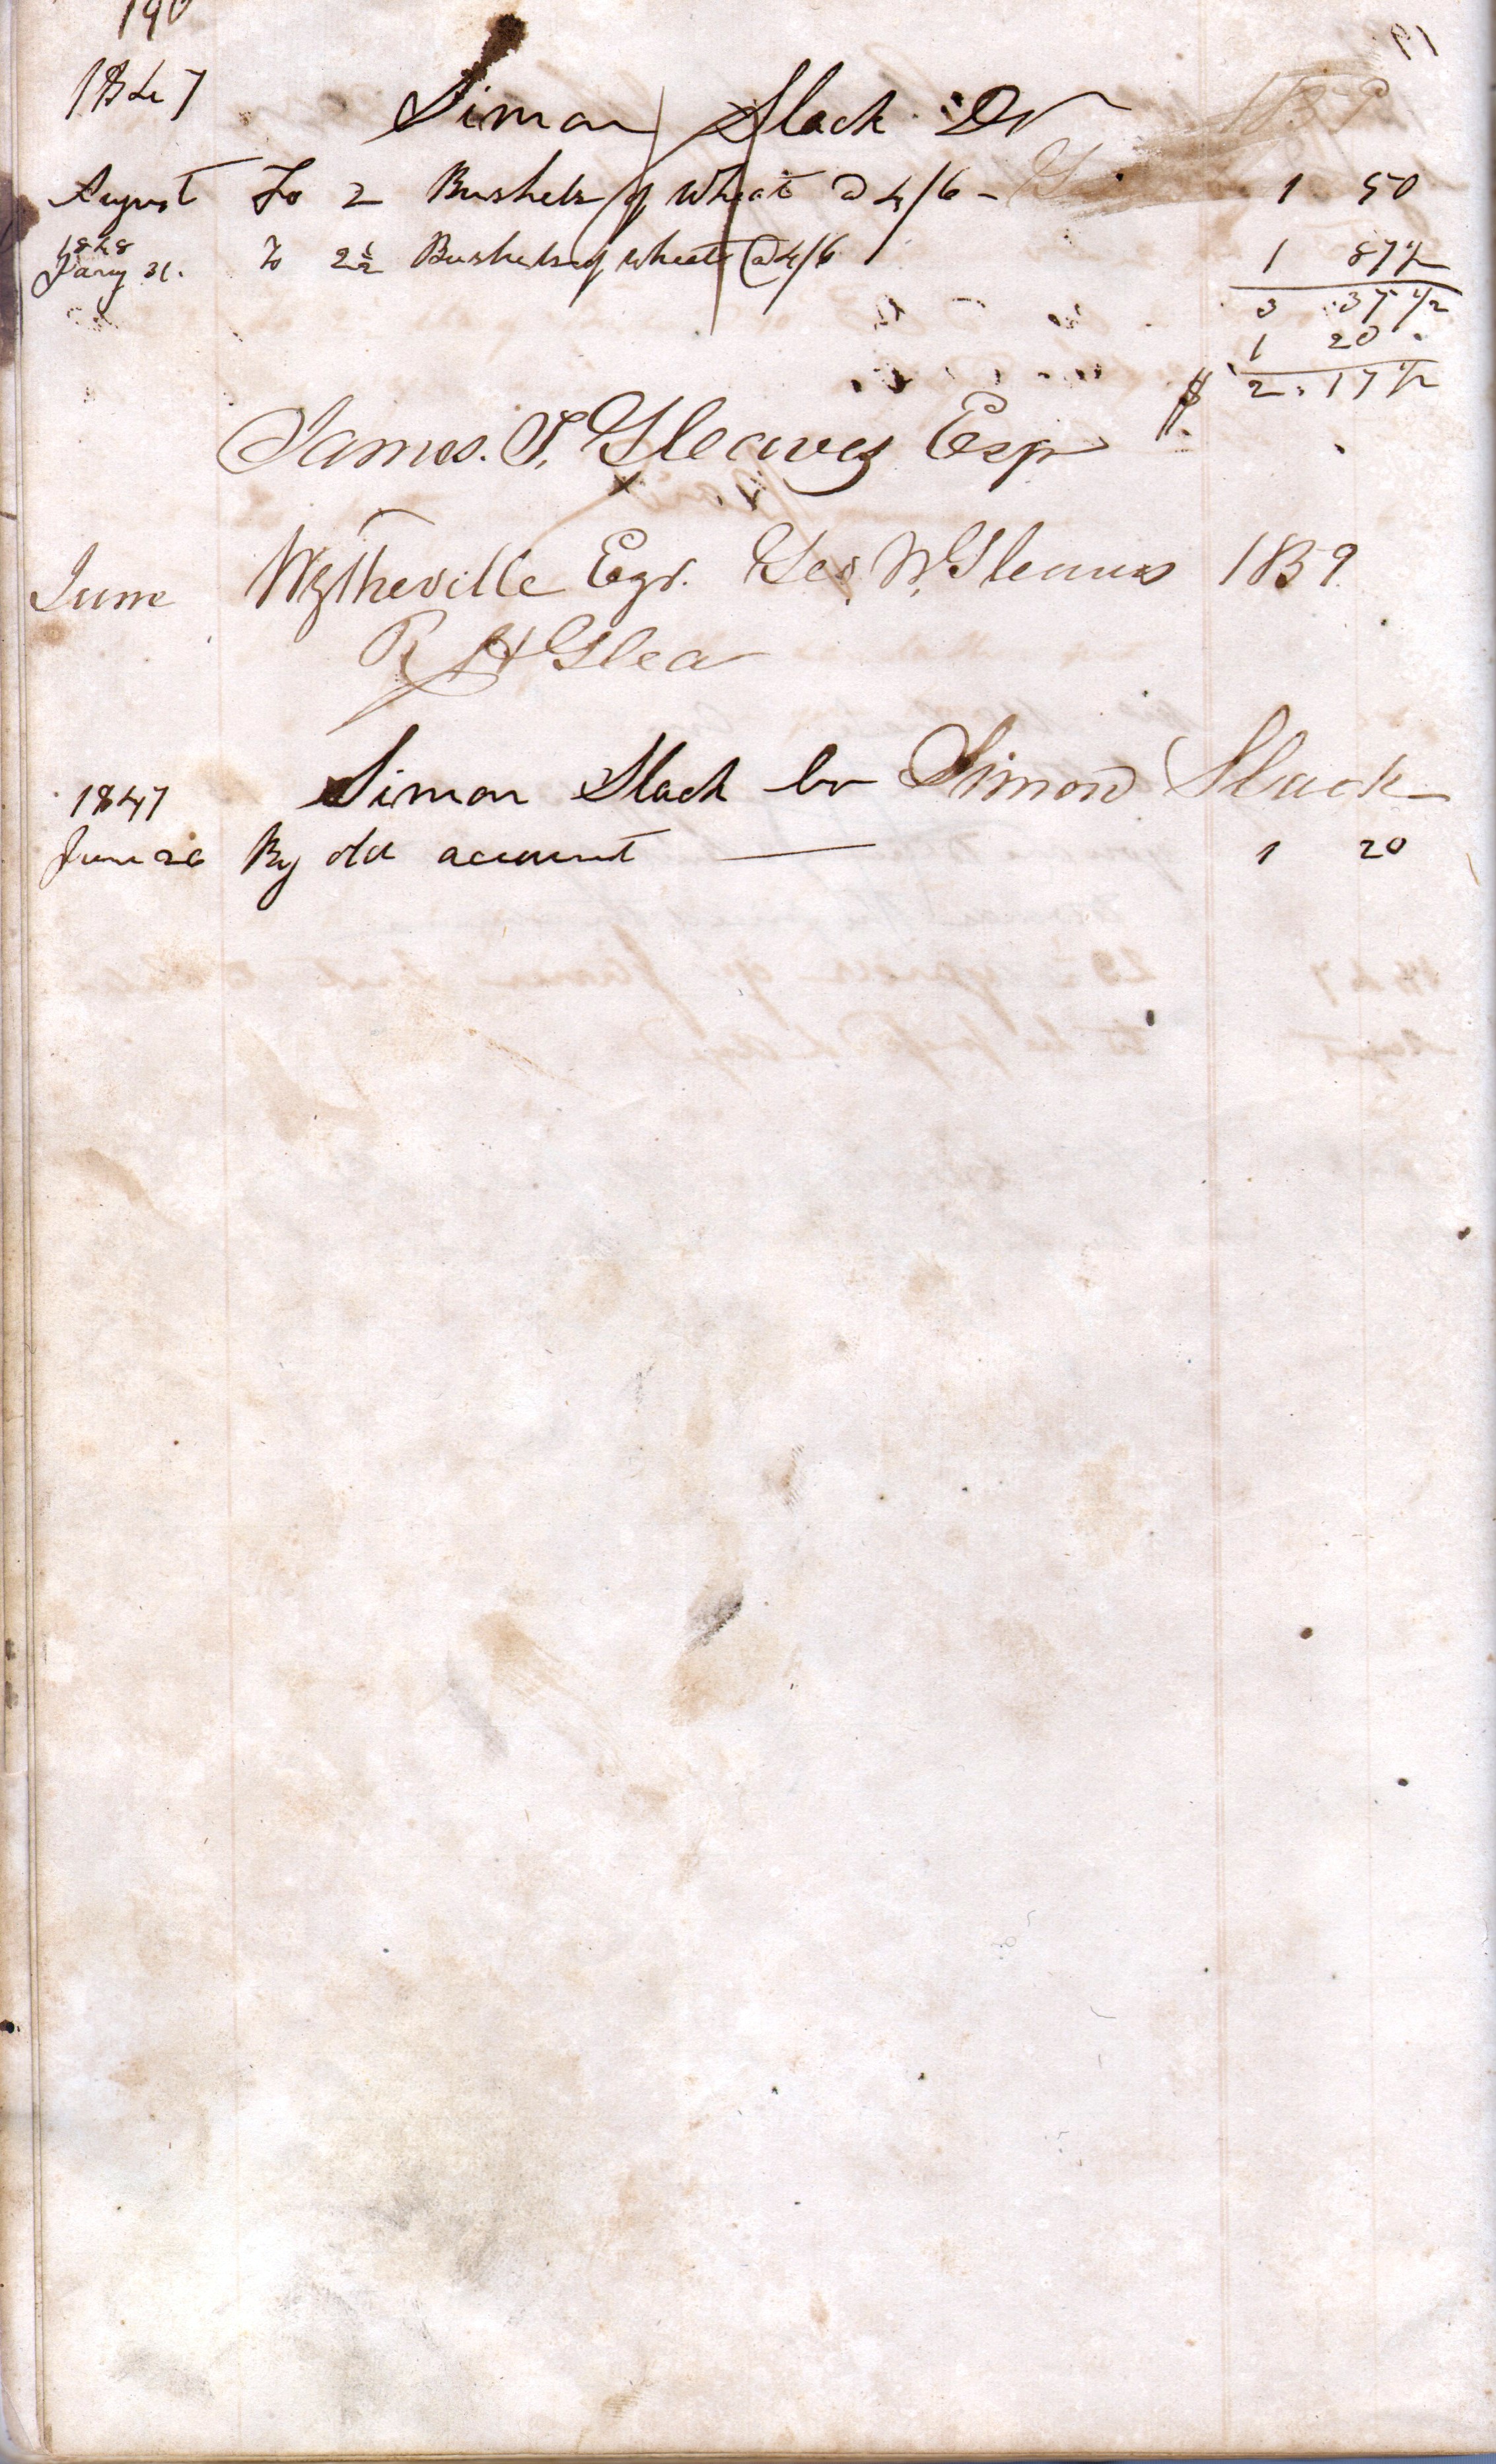 190
1847 Simon Slack Dr
August To 2 Bushels of Wheat @ 4/6 - 1 50
1848
Jany 31. To 2½ Bushels of wheat @ 4/6 1 87½
3 37½
1 20
$ 2.17½
James. T. Gleaves Esqr
June Wytheville Egr. Geo. W. Gleaves 1839
R H Glea
1847 Simon Slack Cr Simon Slack
June 26 By old account 1 20